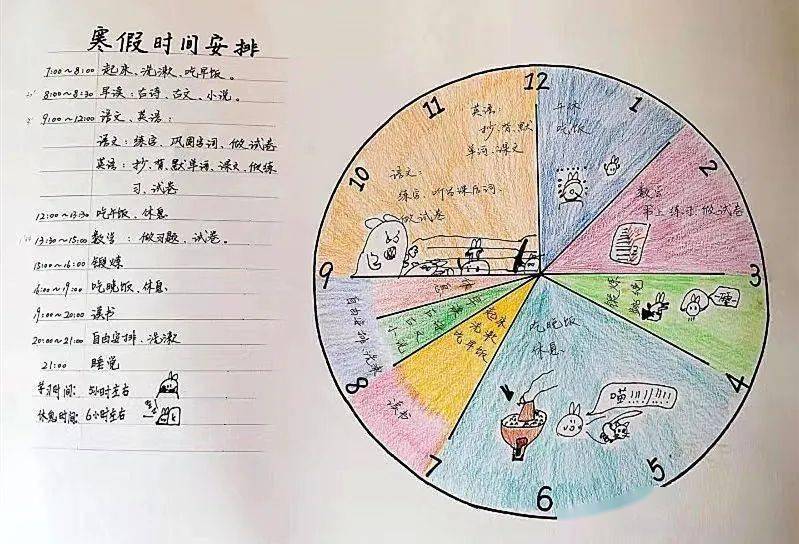 寒假时间安排
7:00～8:00 起来、洗漱、吃早饭。
8:00～8:30 早读：古诗、古文、小说。
9:00～12:00 语文、英语：
语文：练字、巩固字词、做试卷
英语：抄、背、默单词、课文、做练
习、试卷
12:00～13:30 吃午饭、休息
13:30～15:00 数学：做习题、试卷。
15:00～16:00 锻炼
16:00～19:00 吃晚饭、休息
19:00～20:00 读书
20:00～21:00 自由安排、洗漱
21:00 睡觉
学习时间：5小时左右
休息时间：6小时左右
12
1
2
3
4
5
6
7
8
9
10
11
英语：
抄、背、默
单词、课文
语文：
练字、
做试卷
吃饭
数学
练习、做试卷
锻炼
吃晚饭
休息
喵!!!!!!!
起来
洗漱
吃早饭
读书
早读
古诗
古文
小说
自由安排、洗漱